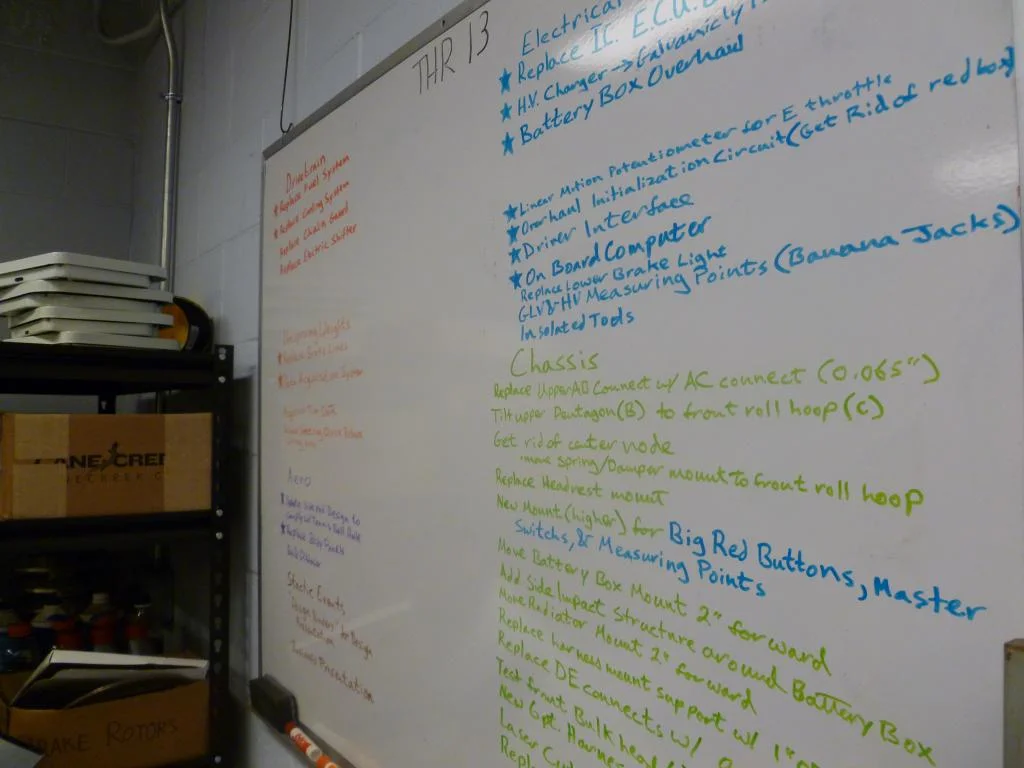 THR 13
Drivetrain
★ Replace Fuel System
★ Replace Cooling System
Replace Chain Guard
Replace Electric Shifter
★ Data Acquisition System
Aero
★ Replace Body Panels
Static Events
Design Binders for Design
Presentation
Business Presentation
Electrical
★ Replace I.C. E.C.U.
★ H.V. Charger → Galvanicly
★ Battery Box Overhaul
★ Linear Motion Potentiometer for E throttle
★ Overhaul Initialization Circuit (Get Rid of red box)
★ Driver Interface
★ On Board Computer
Replace Lower Brake Light
GLV & HV Measuring Points (Banana Jacks)
Insolated Tools
Chassis
Replace Upper AD Connect w/ AC connect (0.065")
Tilt upper Pentagon (B) to front roll hoop (C)
Get rid of center node
- move spring/Damper mount to front roll hoop
Replace Headrest mount
New Mount (higher) for Big Red Buttons, Master
Switchs, & Measuring Points
Move Battery Box Mount 2" forward
Add Side Impact Structure around Battery Box
Move Radiator Mount 2" forward
Replace harness mount support w/ 1"
Replace DE connects w/
Test front Bulkhead
New 6pt. Harness
Laser Cut
Replace
CANE CREEK
BRAKE ROTORS